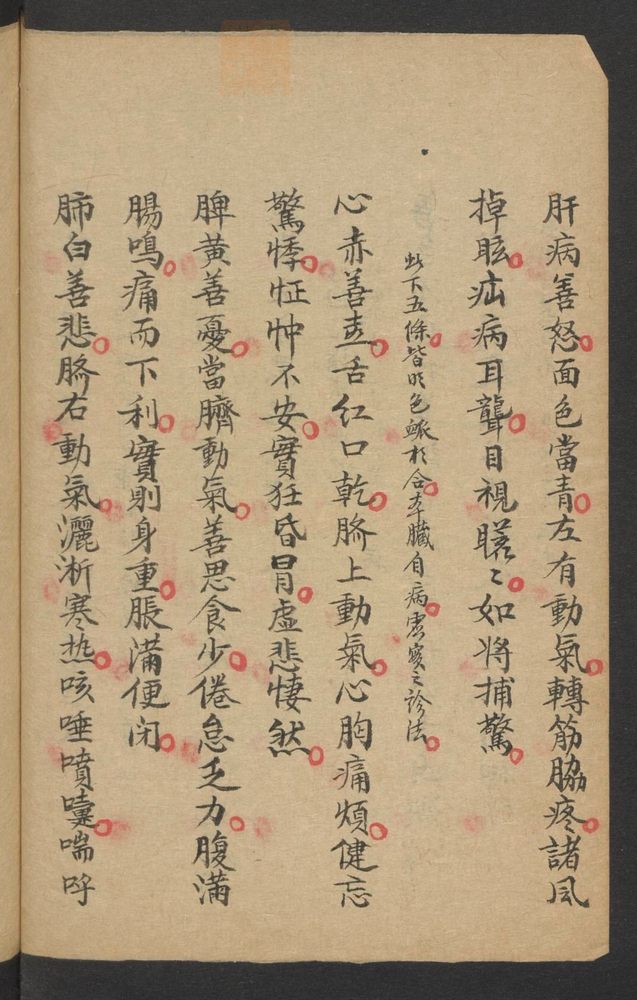 肝病善怒面色當青左有動氣轉筋脇疼諸風
掉眩疝病耳聾目視䀮〻如将捕驚
此下五條皆明色脉相合本臟自病虛實之診法
心赤善喜舌紅口乾臍上動氣心胸痛煩健忘
驚悸怔忡不安實狂昏冒虛悲悽然
脾黄善憂當臍動氣善思食少倦怠乏力腹滿
腸鳴痛而下利實則身重脹滿便閉
肺白善悲臍右動氣灑淅寒热咳唾噴嚏喘呼